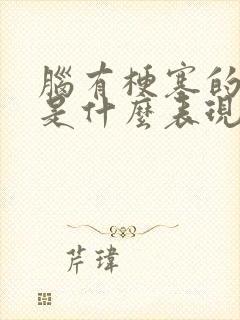 腦有梗塞的
是什麼表現
芹瑋